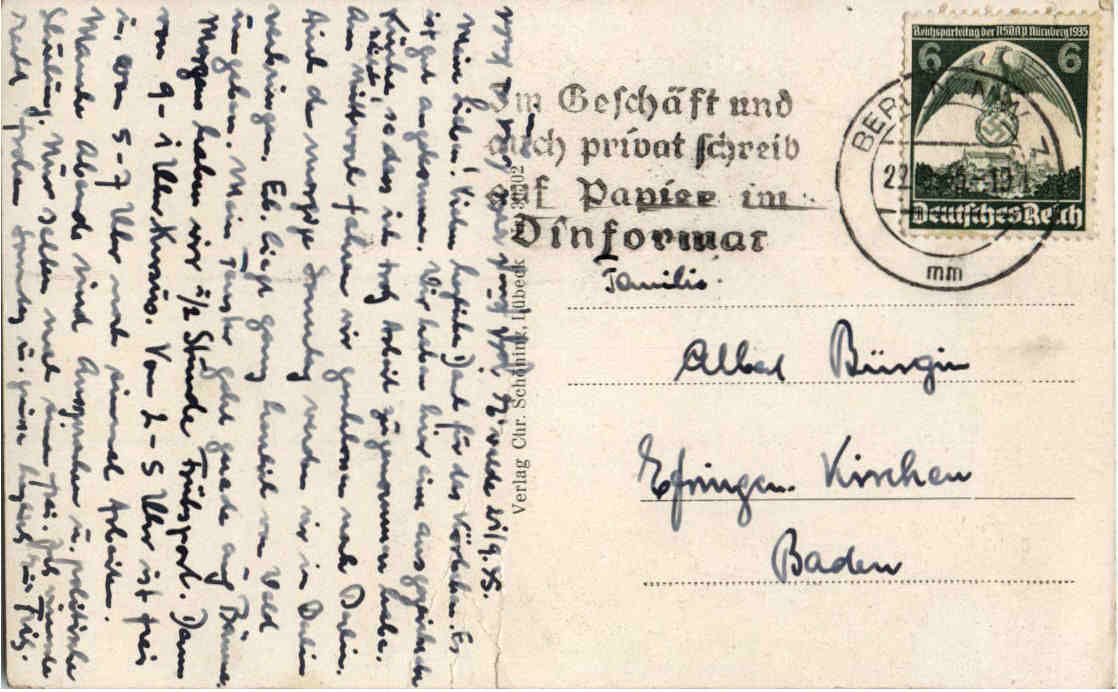 21/9.35.
Meine Lieben! Vielen Dank für das Körbchen. Es
ist gut angekommen. Wir haben hier eine ausgezeichnete
Küche, so dass ich trotz Arbeit zugenommen habe.
Am Mittwoch fahren wir geschlossen nach Berlin.
Auch den morgigen Sonntag werden wir in Berlin
verbringen. Eb. liegt ganz herrlich von Wald
umgeben. Mein Fenster geht gerade auf Bäume.
Morgens haben wir 1/2 Stunde Frühsport. Dann
von 9-1 Uhr Kurs. Von 2-5 Uhr ist frei
u. von 5-7 Uhr noch einmal Arbeiten.
Manche Abende sind Aussprachen u. politische
Schulung. Nur selten frei. Ich wünsche
recht frohen Sonntag u. grüsse Fritz.
Verlag Chr. Schöning, Lübeck
Im Geschäft und
auch privat schreib
auf Papier im
Dinformat
Reichsparteitag der NSDAP Nürnberg 1935
6 6
Deutsches Reich
BERLIN
22
mm
Familie
Albert Bürgin
Efringen-Kirchen
Baden